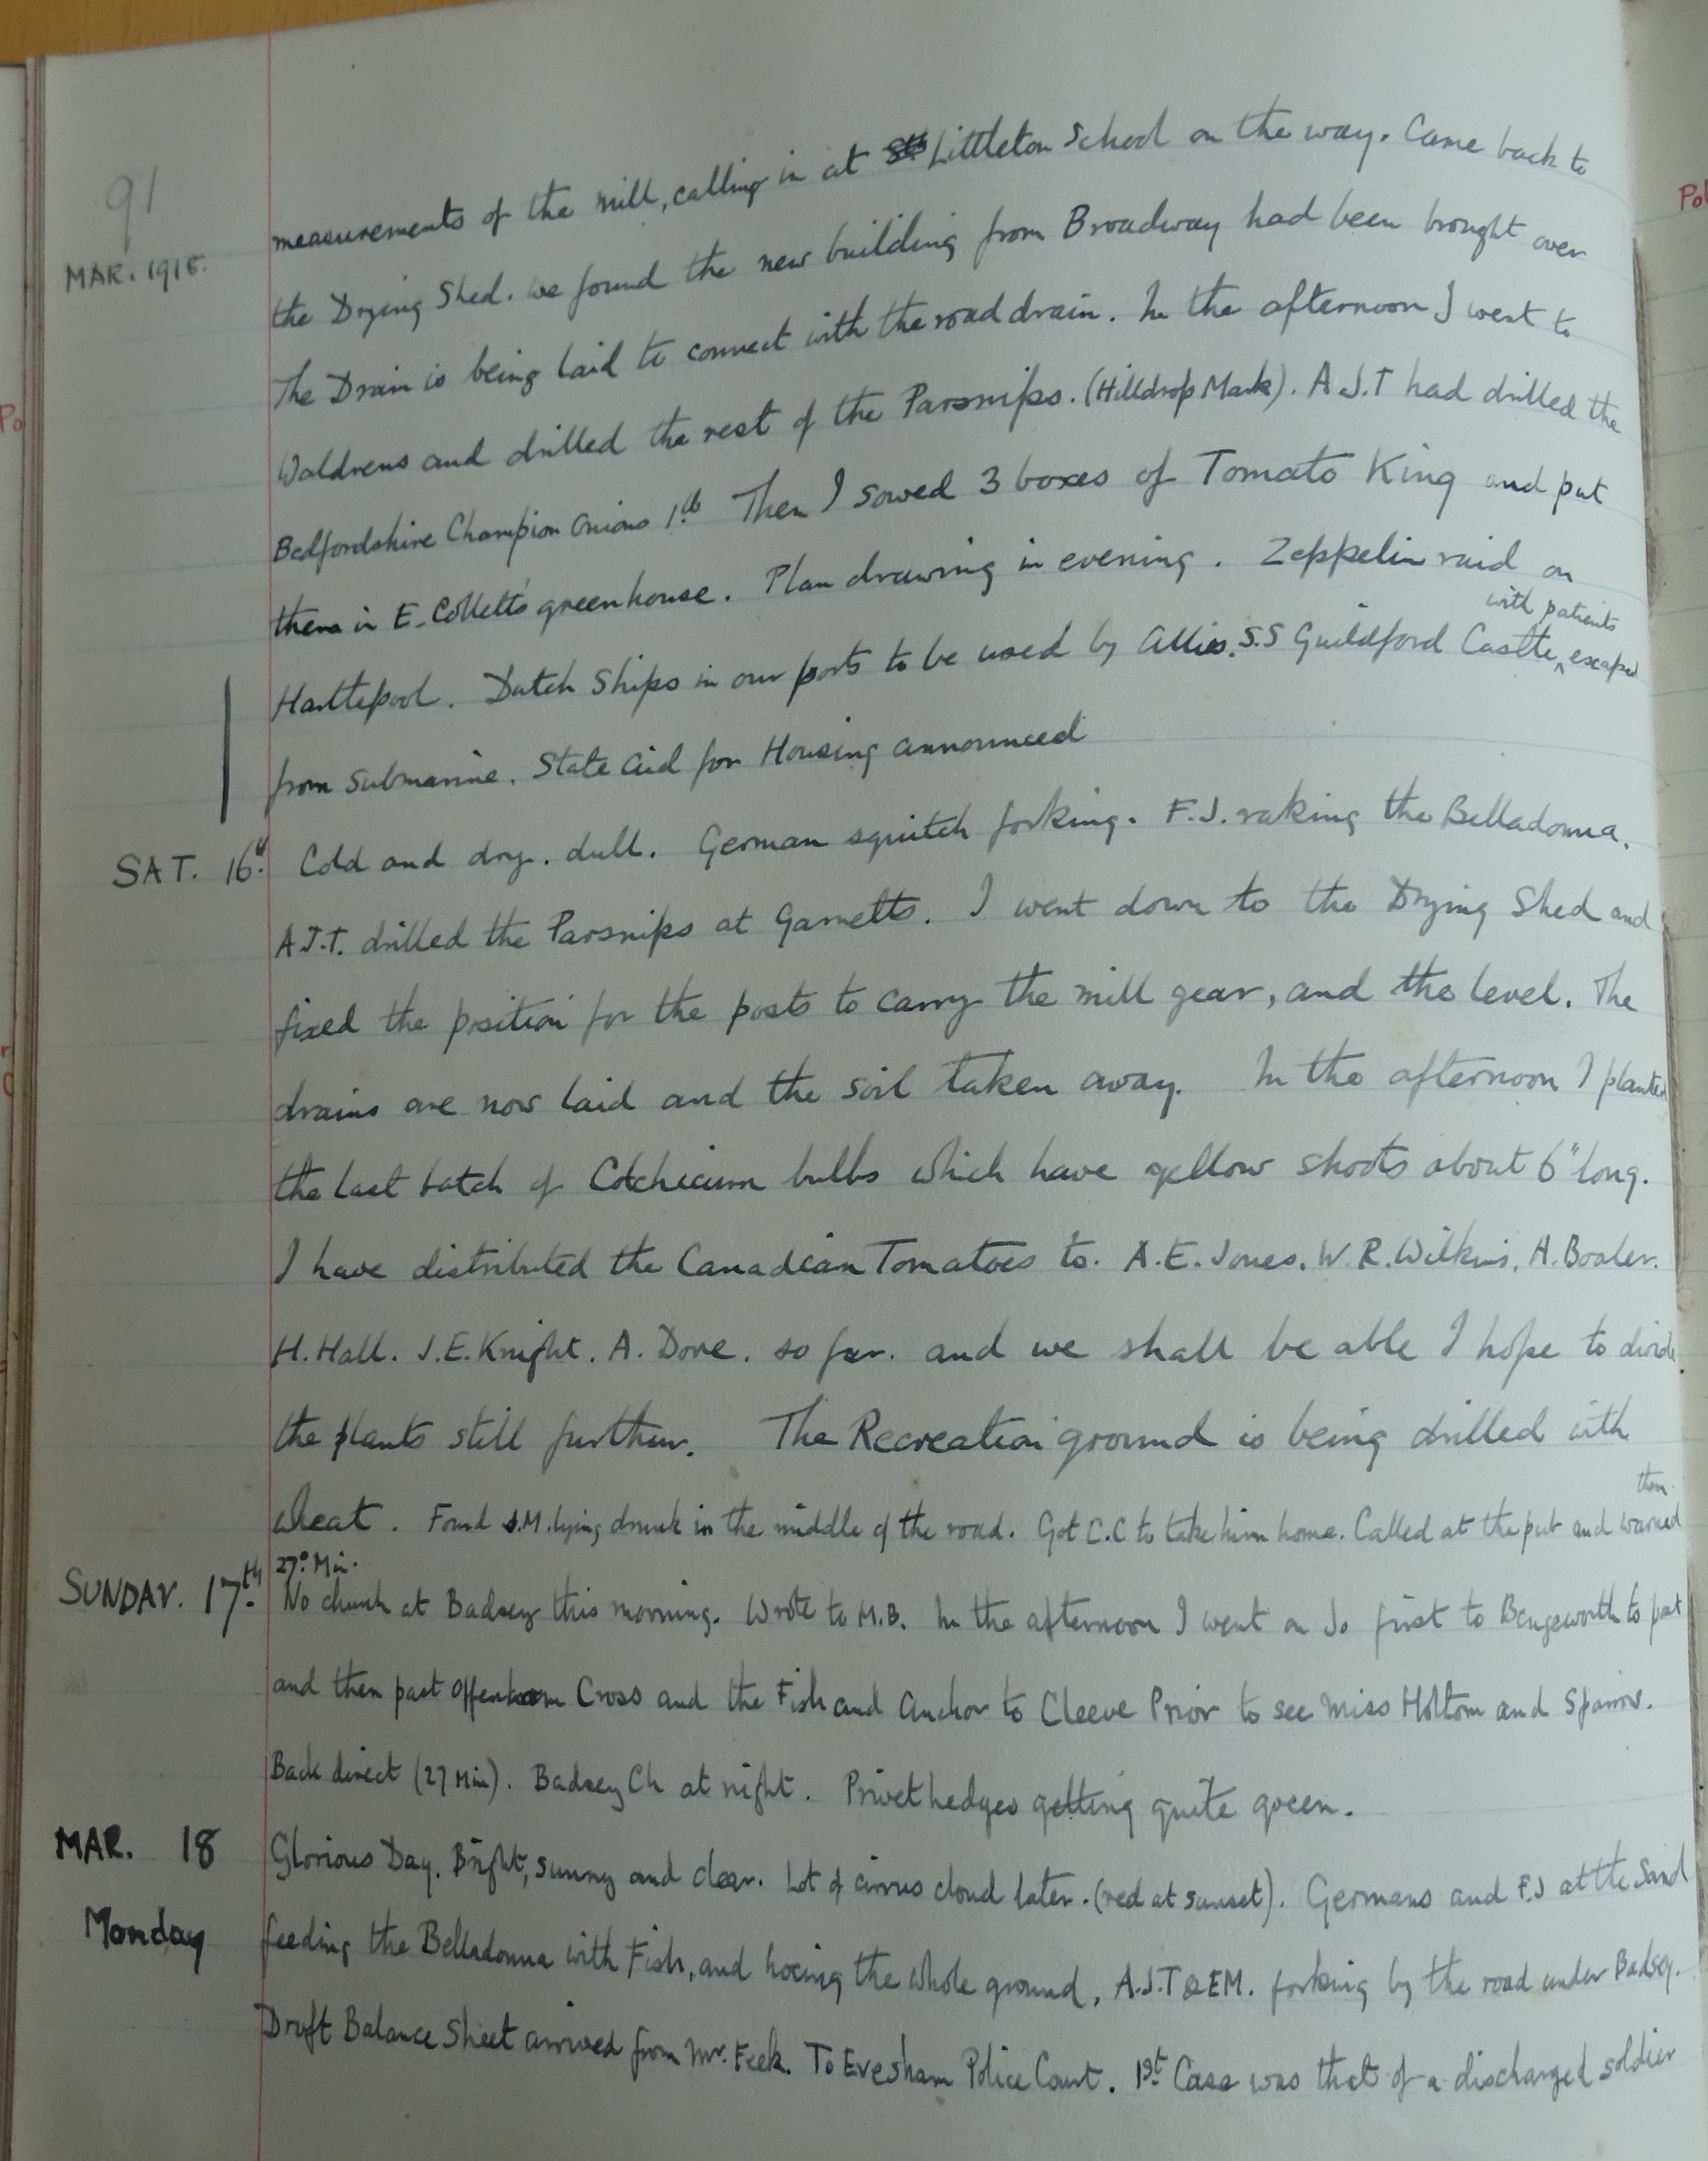 91
MAR. 1918.
measurements of the mill, calling in at Littleton School on the way. Came back to
the Drying Shed. We found the new building from Broadway had been brought over
The Drain is being laid to connect with the road drain. In the afternoon I went to
Waldrens and drilled the rest of the Parsnips. (Hilldrop Mark). A.J.T had drilled the
Bedfordshire Champion Onions 1.lb Then I sowed 3 boxes of Tomato King and put
them in E. Collett's greenhouse. Plan drawing in evening. Zeppelin raid on
with patients
Hartlepool. Dutch Ships in our ports to be used by Allies. S.S Guildford Castle, ^ escaped
from submarine. State aid for Housing announced
SAT. 16th Cold and dry. dull. German squitch forking. F.J. raking the Belladonna.
A.J.T. drilled the Parsnips at Garnetts. I went down to the Drying Shed and
fixed the position for the posts to carry the mill gear, and the level. The
drains are now laid and the soil taken away. In the afternoon I planted
the last batch of Colchicum bulbs which have yellow shoots about 6" long.
I have distributed the Canadian Tomatoes to. A.E. Jones. W.R. Wilkins. A. Boaler.
H. Hall. J.E. Knight. A. Dore. so far. and we shall be able I hope to divide
the plants still further. The Recreation ground is being drilled with
them.
wheat. Found J.M. lying drunk in the middle of the road. Got C.C to take him home. Called at the pub and warned
27° Min.
SUNDAY. 17th No church at Badsey this morning. Wrote to M.B. In the afternoon I went on Jo first to Bengeworth to post
and then past Offenham Cross and the Fish and Anchor to Cleeve Prior to see Miss Holtom and Sparrow.
Back direct (27 Min). Badsey Ch at night. Privet hedges getting quite green.
MAR. 18 Glorious Day. Bright, sunny and clear. Lot of cirrus cloud later. (red at sunset). Germans and F.J at the Sand
Monday feeding the Belladonna with Fish, and hoeing the whole ground, A.J.T & EM. forking by the road under Badsey.
Draft Balance Sheet arrived from Mr. Feek. To Evesham Police Court. 1st Case was that of a discharged soldier